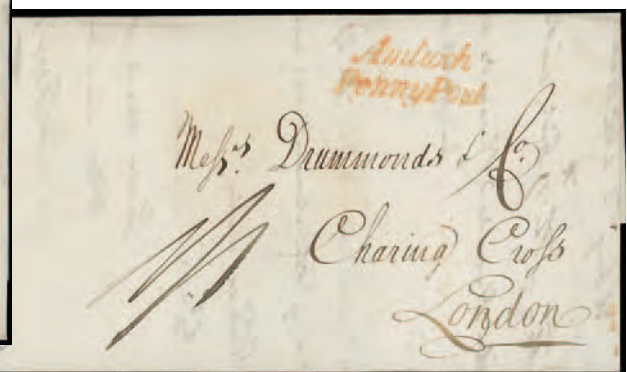 Amlwch
Penny Post
Messrs. Drummonds & Co.
Charing Cross
London